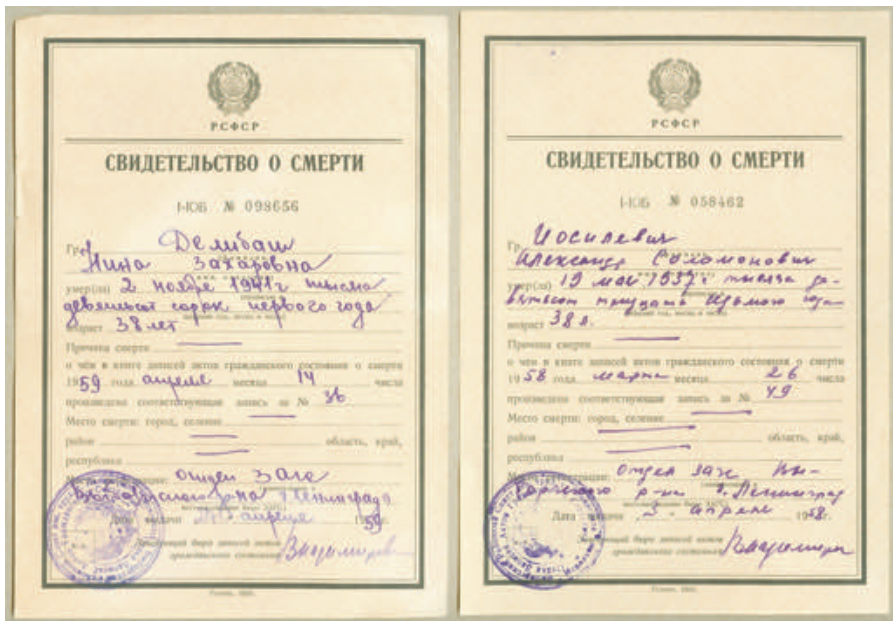 РСФСР
СВИДЕТЕЛЬСТВО О СМЕРТИ
I-ЮБ № 098656
Гр. Делибаш
Нина Захаровна
умер(ла) 2 ноября 1941 г тысяча
девятьсот сорок первого года
возраст 38 лет
Причина смерти
о чём в книге записей актов гражданского состояния о смерти
1959 года апреля месяца 14 числа
произведена соответствующая запись за № 36
Место смерти: город, селение
район область, край,
республика
регистрации: отдел загс
Выборгского р-на г Ленинграда
Дата выдачи апреля 1959
Заведующий бюро записей актов
гражданского состояния
РСФСР
СВИДЕТЕЛЬСТВО О СМЕРТИ
I-ЮБ № 058462
Гр. Иосилевич
Александр Соломонович
умер(ла) 19 мая 1937 г тысяча де-
вятьсот тридцать седьмого года
возраст 38 л.
Причина смерти
о чём в книге записей актов гражданского состояния о смерти
1958 года марта месяца 26 числа
произведена соответствующая запись за № 49
Место смерти: город, селение
район область, край,
республика
регистрации: отдел загс Вы-
боргского р-на г. Ленинград
Дата выдачи 3 апреля 1958
Заведующий бюро записей актов
гражданского состояния